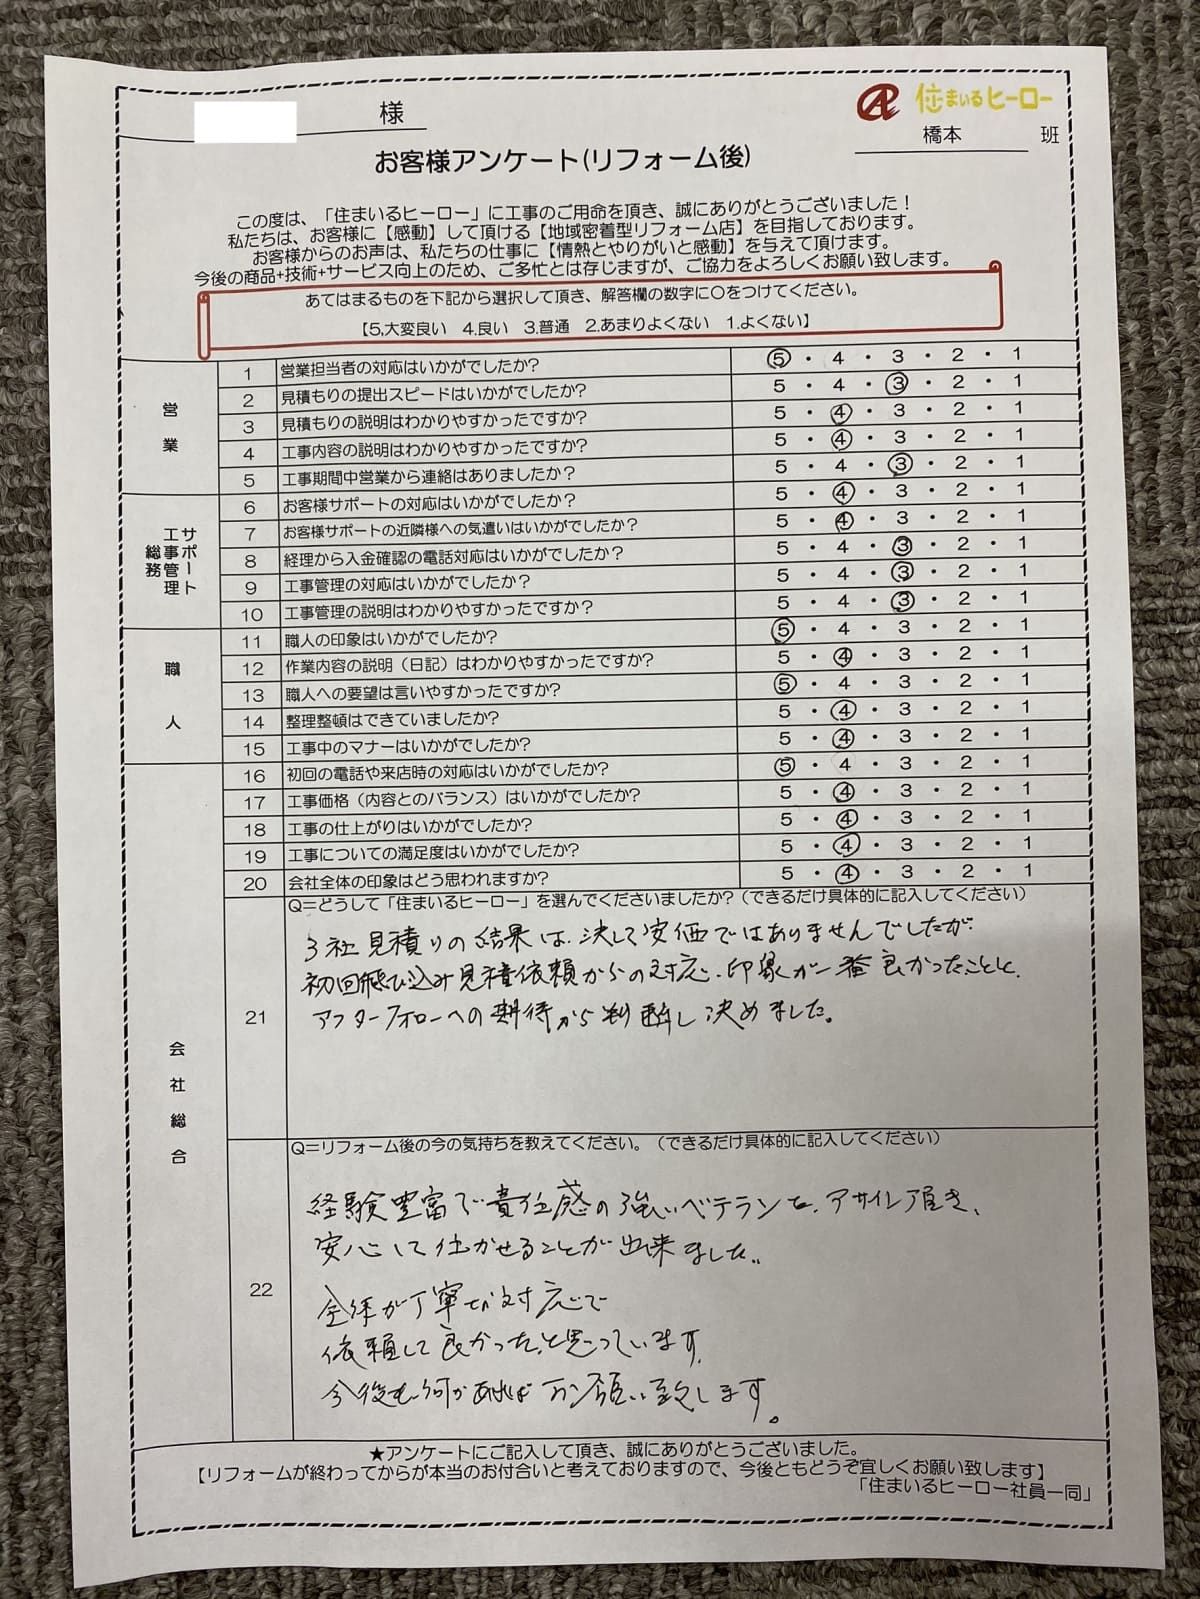 様
住まいるヒーロー
橋本 班
お客様アンケート(リフォーム後)
この度は、「住まいるヒーロー」に工事のご用命を頂き、誠にありがとうございました！
私たちは、お客様に【感動】して頂ける【地域密着型リフォーム店】を目指しております。
お客様からのお声は、私たちの仕事に【情熱とやりがいと感動】を与えて頂けます。
今後の商品+技術+サービス向上のため、ご多忙とは存じますが、ご協力をよろしくお願い致します。
あてはまるものを下記から選択して頂き、解答欄の数字に〇をつけてください。
【5,大変良い 4.良い 3.普通 2.あまりよくない 1.よくない】
営業
1 営業担当者の対応はいかがでしたか? 5・4・3・2・1
2 見積もりの提出スピードはいかがでしたか? 5・4・3・2・1
3 見積もりの説明はわかりやすかったですか? 5・4・3・2・1
4 工事内容の説明はわかりやすかったですか? 5・4・3・2・1
5 工事期間中営業から連絡はありましたか？ 5・4・3・2・1
サポート
工事管理
総務
6 お客様サポートの対応はいかがでしたか？ 5・4・3・2・1
7 お客様サポートの近隣様への気遣いはいかがでしたか？ 5・4・3・2・1
8 経理から入金確認の電話対応はいかがでしたか？ 5・4・3・2・1
9 工事管理の対応はいかがでしたか？ 5・4・3・2・1
10 工事管理の説明はわかりやすかったですか？ 5・4・3・2・1
職人
11 職人の印象はいかがでしたか? 5・4・3・2・1
12 作業内容の説明（日記）はわかりやすかったですか? 5・4・3・2・1
13 職人への要望は言いやすかったですか? 5・4・3・2・1
14 整理整頓はできていましたか? 5・4・3・2・1
15 工事中のマナーはいかがでしたか? 5・4・3・2・1
会社総合
16 初回の電話や来店時の対応はいかがでしたか? 5・4・3・2・1
17 工事価格（内容とのバランス）はいかがでしたか? 5・4・3・2・1
18 工事の仕上がりはいかがでしたか? 5・4・3・2・1
19 工事についての満足度はいかがでしたか? 5・4・3・2・1
20 会社全体の印象はどう思われますか? 5・4・3・2・1
21 Q=どうして「住まいるヒーロー」を選んでくださいましたか？(できるだけ具体的に記入してください)
3社見積りの結果は、決して安価ではありませんでしたが、
初回飛び込み見積依頼からの対応、印象が一番良かったことと、
アフターフォローへの期待から判断し決めました。
22 Q=リフォーム後の今の気持ちを教えてください。（できるだけ具体的に記入してください）
経験豊富で責任感の強いベテランを、アサインし頂き、
安心して任かせることが出来ました。
全体が丁寧な対応で
依頼して良かったと思っています。
今後も何かあればお願い致します。
★アンケートにご記入して頂き、誠にありがとうございました。
【リフォームが終わってからが本当のお付合いと考えておりますので、今後ともどうぞ宜しくお願い致します】
「住まいるヒーロー社員一同」